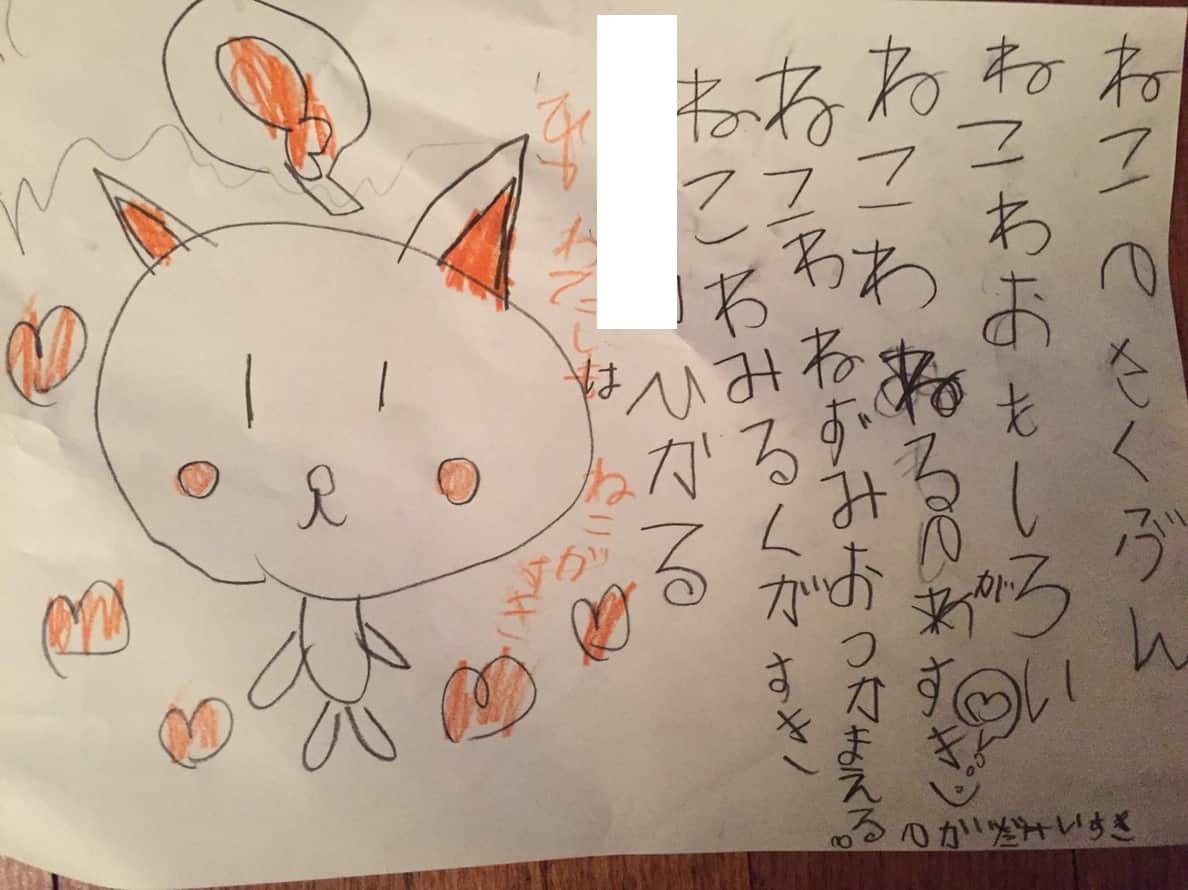 ねこのさくぶん
ねこわおもしろい
ねこわねるのがすき
のがだいすき
ねこわねずみおつかまえる
ねこわみるくがすき
ねこ
はひがてる
わたしも
ねこが
すき